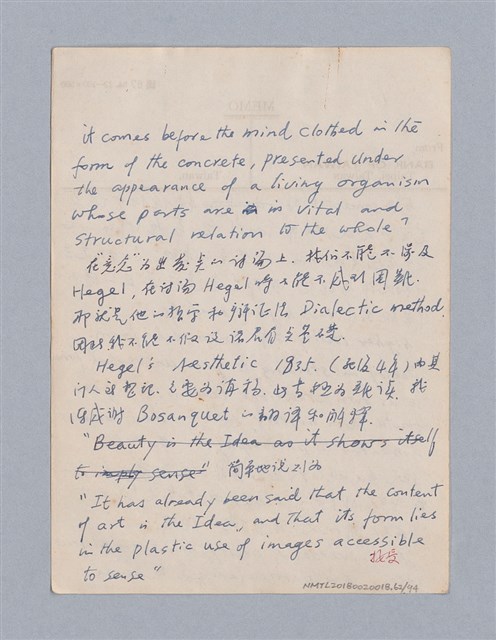 it comes before the mind clothed in the
form of the concrete, presented under
the appearance of a living organism
whose parts are in vital and
structural relation to the whole"
在"意念"為出發點的討論上, 我們不能不涉及
Hegel, 在討論 Hegel 時不能不感到困難.
那就是他的哲學和辯証法 Dialectic method.
因此我不能不假設讀者有些基礎.
Hegel's Aesthetic 1835. (死後4年) 由其
門人 為講稿. 此書極為難讀. 我
得感謝 Bosanquet 的翻譯和解釋.
"Beauty is the Idea as it shows itself
to imply sense" 簡單地說則為
"It has already been said that the content
of art is the Idea, and that its form lies
in the plastic use of images accessible
to sense"
接受
NMTL20180020018.62/94
MEMO